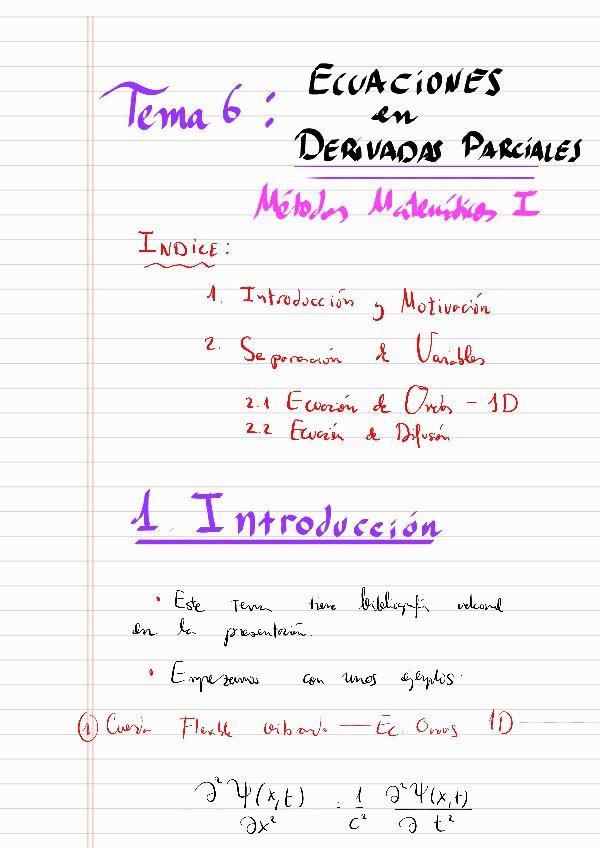 Tema 6: ECUACIONES
en
DERIVADAS PARCIALES
Métodos Matemáticos I
INDICE:
1. Introducción y Motivación
2. Separación de Variables
2.1 Ecuación de Ondas - 1D
2.2 Ecuación de Difusión
1. Introducción
• Este Tema tiene bibliografía
en la presentación.
• Empezamos con unos ejemplos.
① Cuerda Flexible vibrando — Ec. Ondas 1D
∂²Ψ(x,t)/∂x² = 1/c² ∂²Ψ(x,t)/∂t²